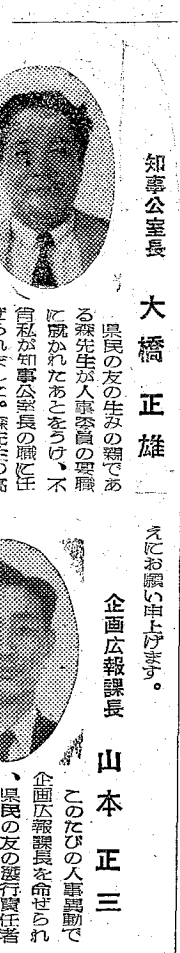 知事公室長 大橋正雄
県民の友の生みの親であ
る森先生が人事委員の要職
に就かれたあとをうけ、不
肖私が知事公室長の職に任
えにお願い申上げます。
企画広報課長 山本正三
このたびの人事異動で
企画広報課長を命ぜられ
、県民の友の発行責任者